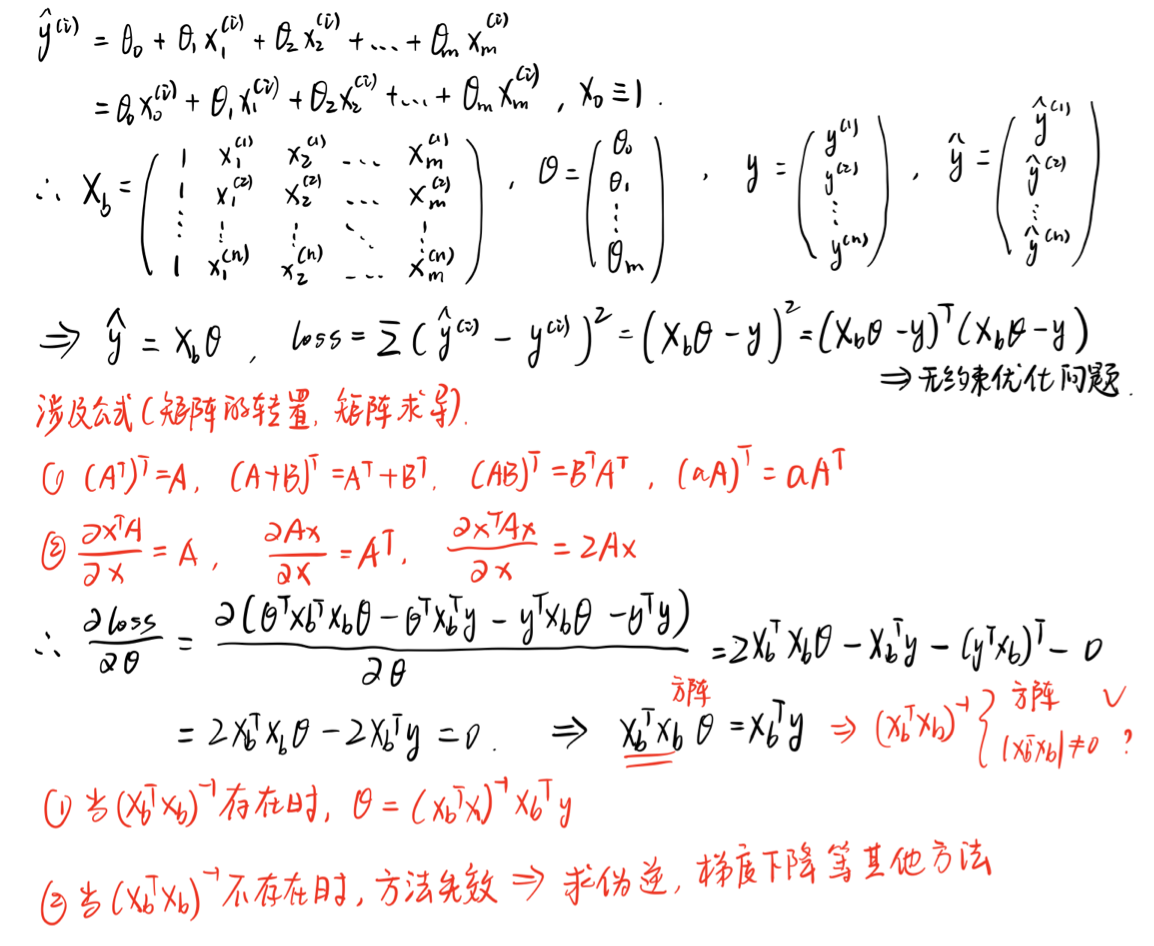 ŷ⁽ⁱ⁾ = θ₀ + θ₁x₁⁽ⁱ⁾ + θ₂x₂⁽ⁱ⁾ + ... + θₘxₘ⁽ⁱ⁾
= θ₀x₀⁽ⁱ⁾ + θ₁x₁⁽ⁱ⁾ + θ₂x₂⁽ⁱ⁾ + ... + θₘxₘ⁽ⁱ⁾ , x₀ ≡ 1 .
∴ X_b = ( 1 x₁⁽¹⁾ x₂⁽¹⁾ ... xₘ⁽¹⁾ ; 1 x₁⁽²⁾ x₂⁽²⁾ ... xₘ⁽²⁾ ; ⋮ ⋮ ⋮ ⋱ ⋮ ; 1 x₁⁽ⁿ⁾ x₂⁽ⁿ⁾ ... xₘ⁽ⁿ⁾ ) , θ = ( θ₀ ; θ₁ ; ⋮ ; θₘ ) , y = ( y⁽¹⁾ ; y⁽²⁾ ; ⋮ ; y⁽ⁿ⁾ ) , ŷ = ( ŷ⁽¹⁾ ; ŷ⁽²⁾ ; ⋮ ; ŷ⁽ⁿ⁾ )
⇒ ŷ = X_bθ , loss = Σ(ŷ⁽ⁱ⁾ - y⁽ⁱ⁾)² = (X_bθ - y)² = (X_bθ - y)ᵀ(X_bθ - y)
⇒ 无约束优化问题.
涉及公式(矩阵的转置, 矩阵求导).
① (Aᵀ)ᵀ = A, (A+B)ᵀ = Aᵀ + Bᵀ, (AB)ᵀ = BᵀAᵀ , (aA)ᵀ = aAᵀ
② ∂xᵀA/∂x = A , ∂Ax/∂x = Aᵀ, ∂xᵀAx/∂x = 2Ax
∴ ∂loss/∂θ = ∂(θᵀX_bᵀX_bθ - θᵀX_bᵀy - yᵀX_bθ - yᵀy)/∂θ = 2X_bᵀX_bθ - X_bᵀy - (yᵀX_b)ᵀ - 0
方阵
= 2X_bᵀX_bθ - 2X_bᵀy = 0. ⇒ X_bᵀX_b θ = X_bᵀy ⇒ (X_bᵀX_b)⁻¹ { 方阵 ✓
|X_bᵀX_b| ≠ 0 ?
① 当(X_bᵀX_b)⁻¹存在时, θ = (X_bᵀX)⁻¹X_bᵀy
② 当(X_bᵀX_b)⁻¹不存在时, 方法失效 ⇒ 求伪逆, 梯度下降等其他方法